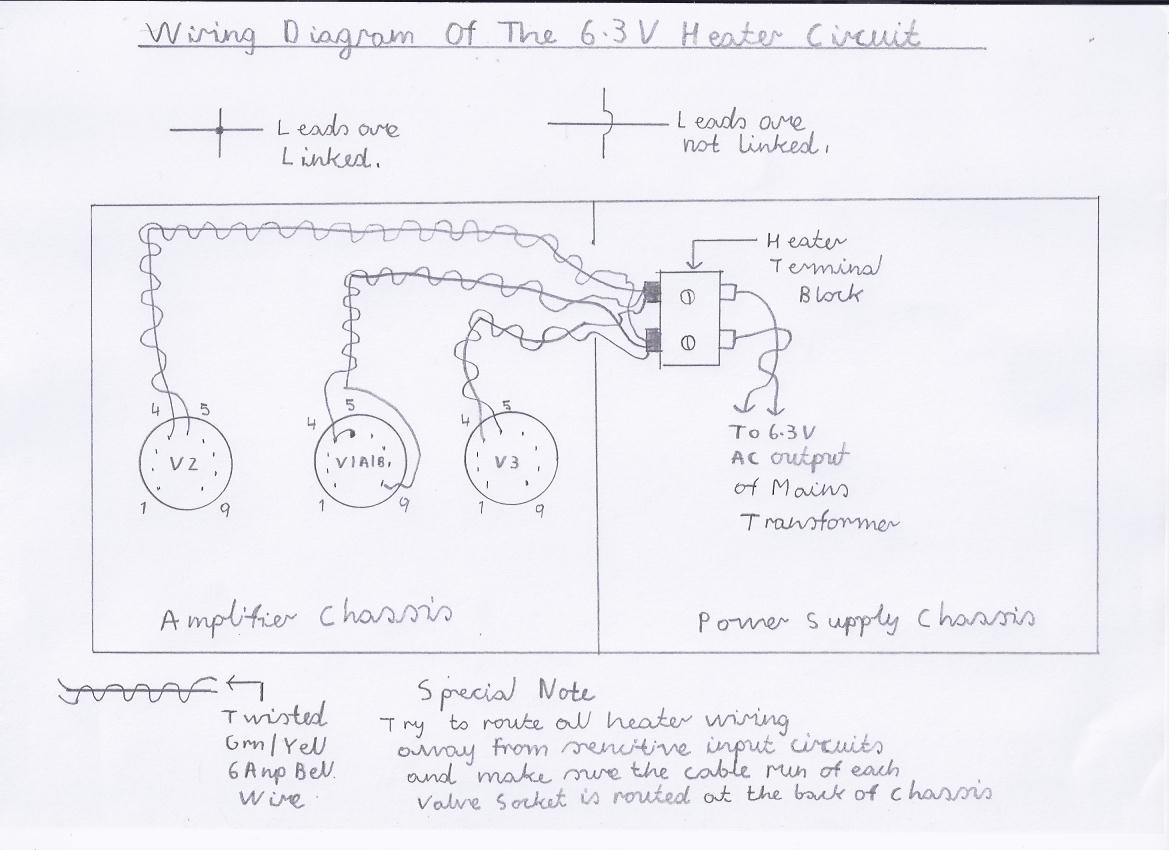 Wiring Diagram Of The 6.3V Heater Circuit
Leads are
Linked.
Leads are
not linked.
Heater
Terminal
Block
4 5
4 5
4 5
V2
V1A/B.
V3
1 9
1 9
1 9
To 6.3V
AC output
of Mains
Transformer
Amplifier Chassis
Power Supply Chassis
Twisted
Grn/Yell
6Amp Bell
Wire
Special Note
Try to route all heater wiring
away from sencitive input circuits
and make sure the cable run of each
Valve Socket is routed at the back of chassis